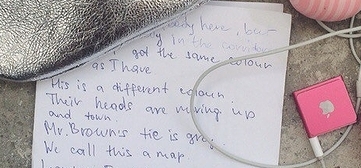 here, but
in the corridor
got the same colour
as I have
This is a different colour.
Their heads are moving up
and town.
Mr. Brown's tie is grey
We call this a map